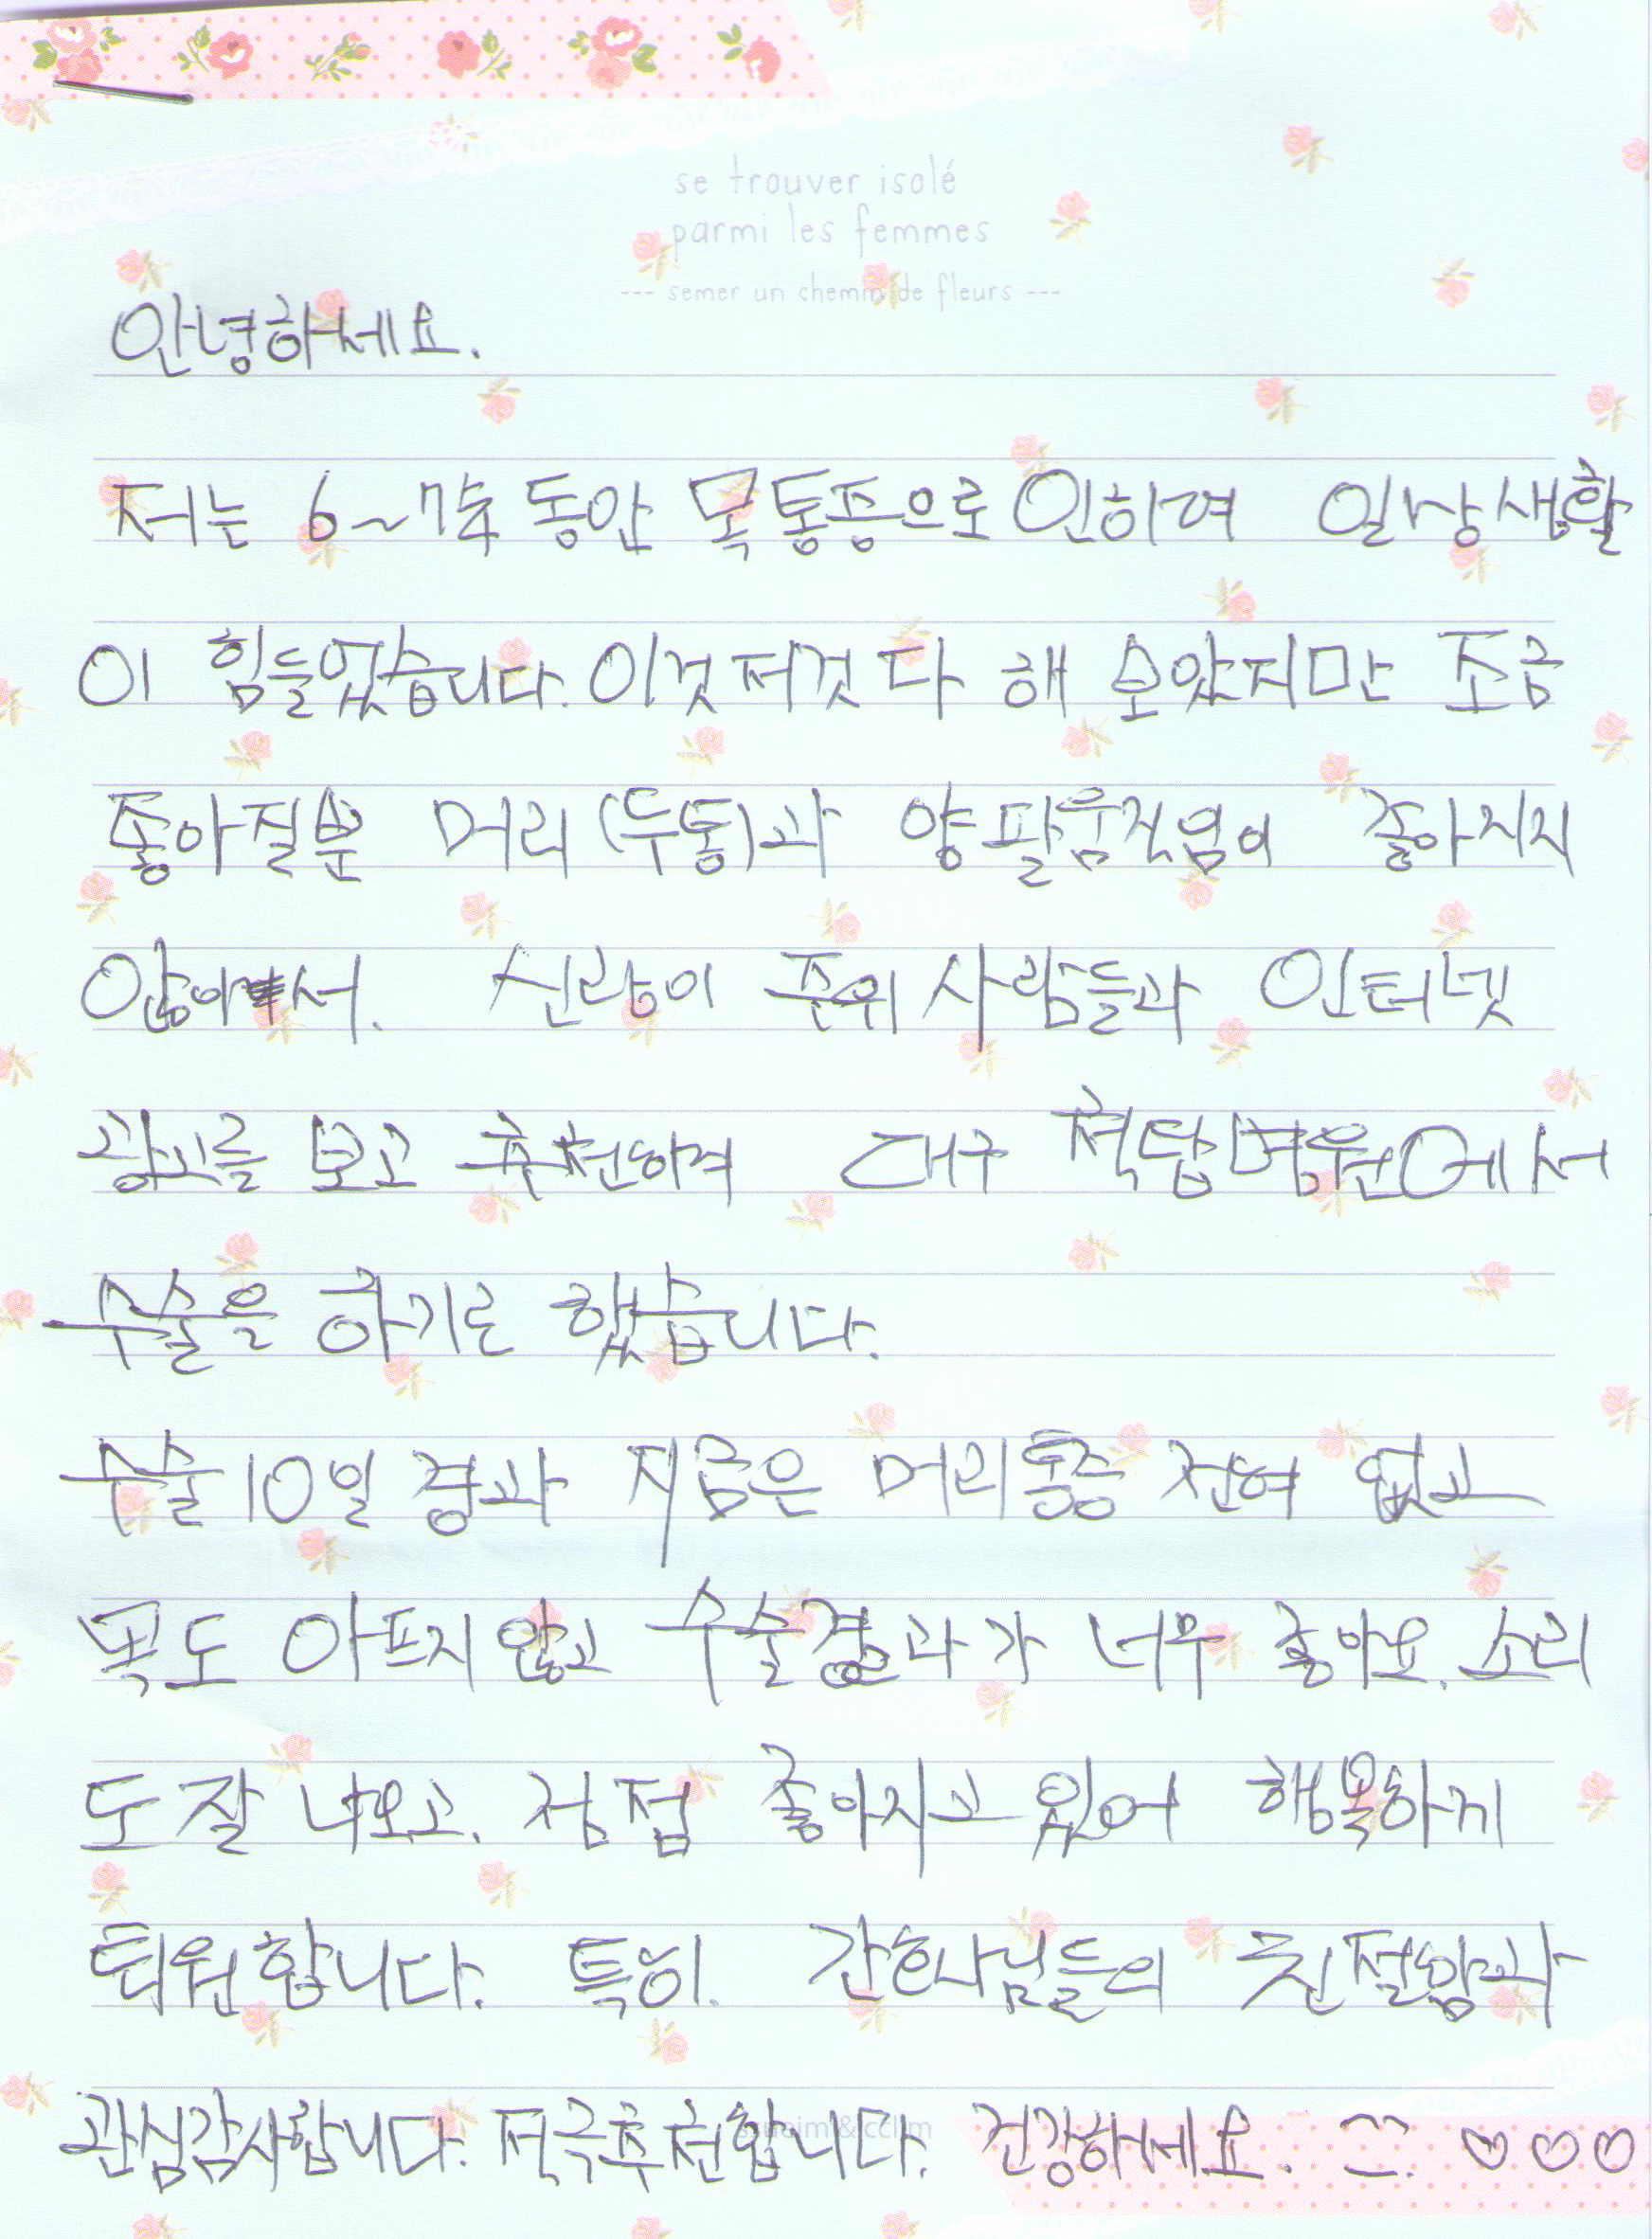 se trouver isolé
parmi les femmes
--- semer un chemin de fleurs ---
안녕하세요.
저는 6~7年 동안 목 통증으로 인하여 일상생활
이 힘들었습니다. 이것저것 다 해 보았지만 조금
좋아질뿐 머리(두통)과 양팔움직임이 좋아지지
않아서. 신랑이 주위 사람들과 인터넷
광고를 보고 추천하여 대구 척탑병원에서
수술을 하기로 했습니다.
수술 10일 경과 지금은 머리통증 전혀 없고
목도 아프지 않고 수술결과가 너무 좋아요. 소리
도 잘 나오고. 점점 좋아지고 있어 행복하게
퇴원합니다. 특히. 간호사님들의 친절함과
관심감사합니다. 적극추천합니다. 건강하세요. ♡♡♡